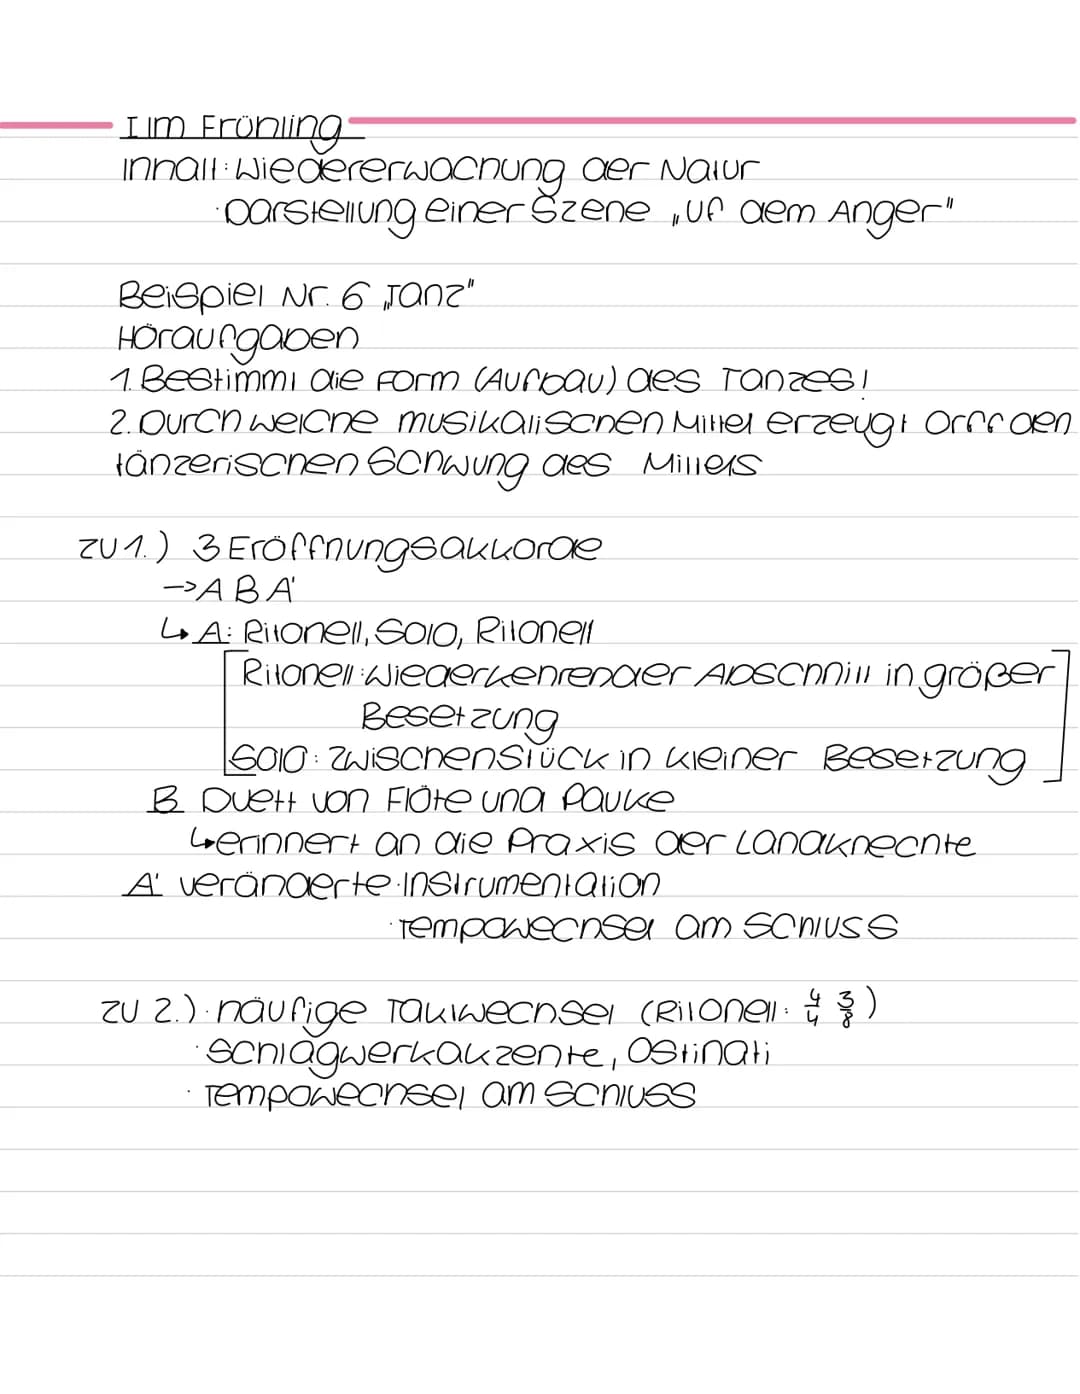 I Im Frühling
Inhalt: Wiedererwachung der Natur
· Darstellung einer Szene „Uf dem Anger"
Beispiel Nr. 6 „Tanz"
Höraufgaben
1. Bestimmt die Form (Aufbau) des Tanzes!
2. Durch welche musikalischen Mittel erzeugt Orff den
tänzerischen Schwung des Mittels
zu 1.) 3 Eröffnungsakkorde
-> A B A'
↳ A: Ritonell, Solo, Ritonell
[Ritonell: Wiederkehrender Abschnitt in größer
Besetzung
Solo: Zwischenstück in kleiner Besetzung]
B Duett von Flöte und Pauke
↳ erinnert an die Praxis der Landknechte
A' veränderte Instrumentation
· Tempowechsel am Schluss
zu 2.) · häufige Taktwechsel (Ritonell: 4/4 3/8)
· Schlagwerkakzente, Ostinati
· Tempowechsel am Schluss